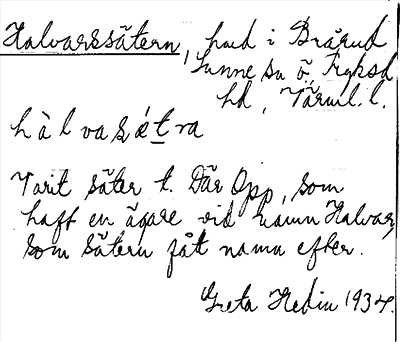 Halvarssätern, hmd i Brårud
Sunne sn Ö. Fryksd.
hd, Värml. l.
hàlvasǽtra
Varit säter t. Där Opp, som
haft en ägare vid namn Halvar,
som sätern fått namn efter.
Greta Hedin 1934.